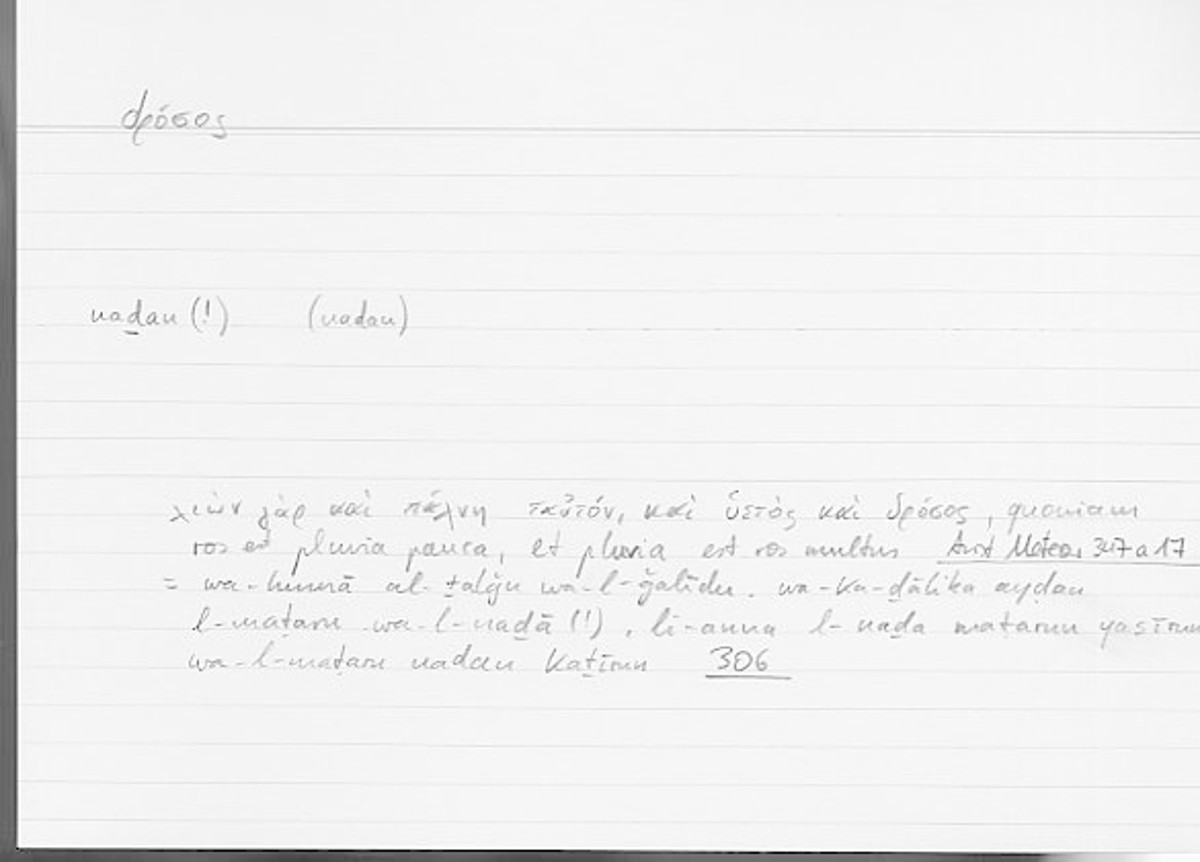 δρόσος
naḏan (!) (nadan)
χιὼν γὰρ καὶ πάχνη ταὐτόν, καὶ ὑετὸς καὶ δρόσος, quoniam
ros est pluvia pauca, et pluvia est ros multus Arist Meteor 347 a 17
= wa-humā al-ṯalǧu wa-l-ǧalīdu. wa-ka-ḏālika ayḍan
l-maṭaru wa-l-naḏā (!), li-anna l-naḏa maṭarun yasīrun
wa-l-maṭaru nadan kaṯīrun 306